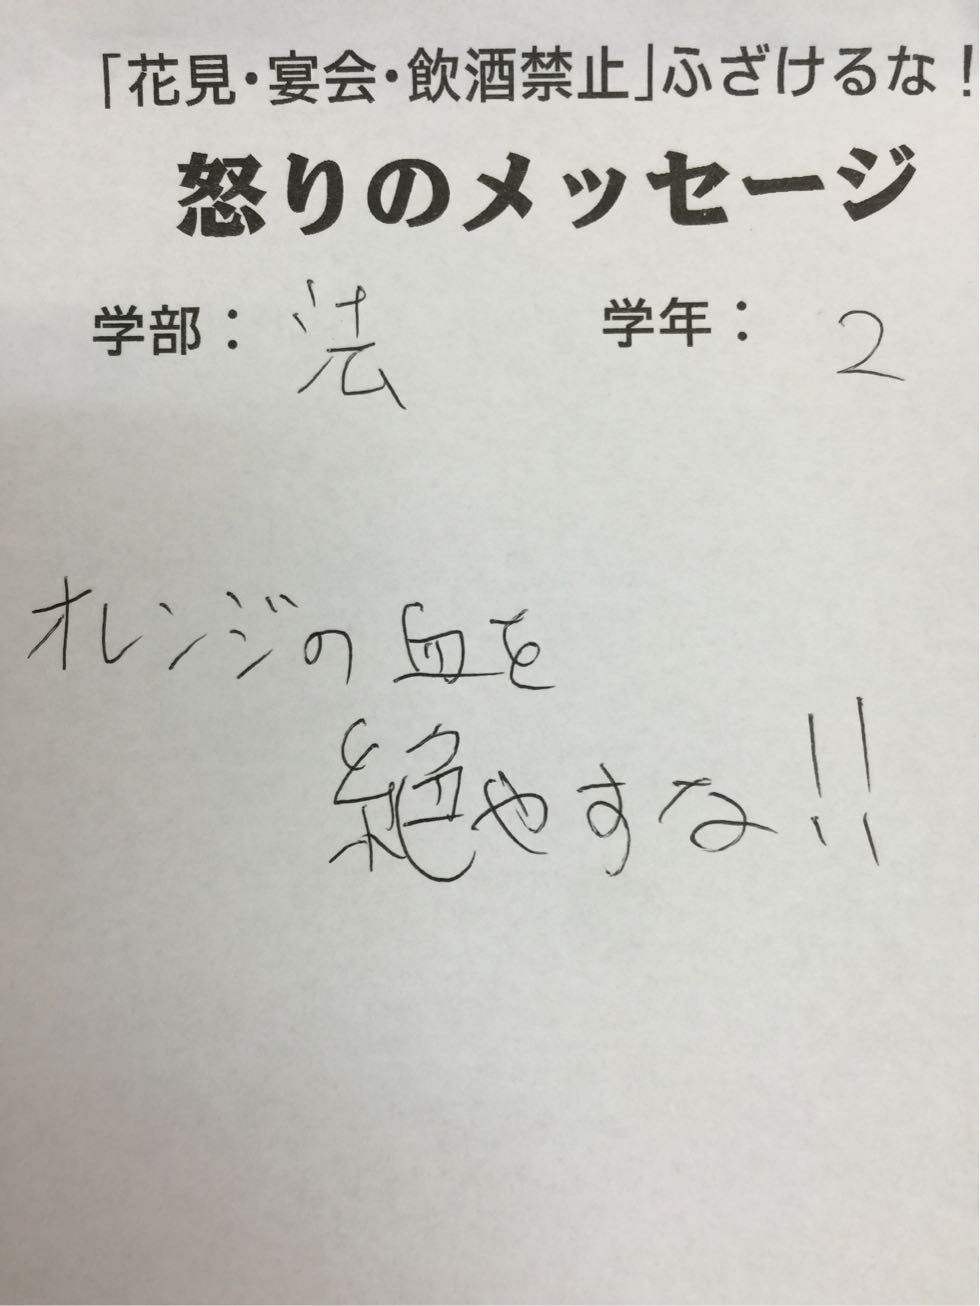 「花見・宴会・飲酒禁止」ふざけるな！
怒りのメッセージ
学部： 法 学年： 2
オレンジの血を
絶やすな!!